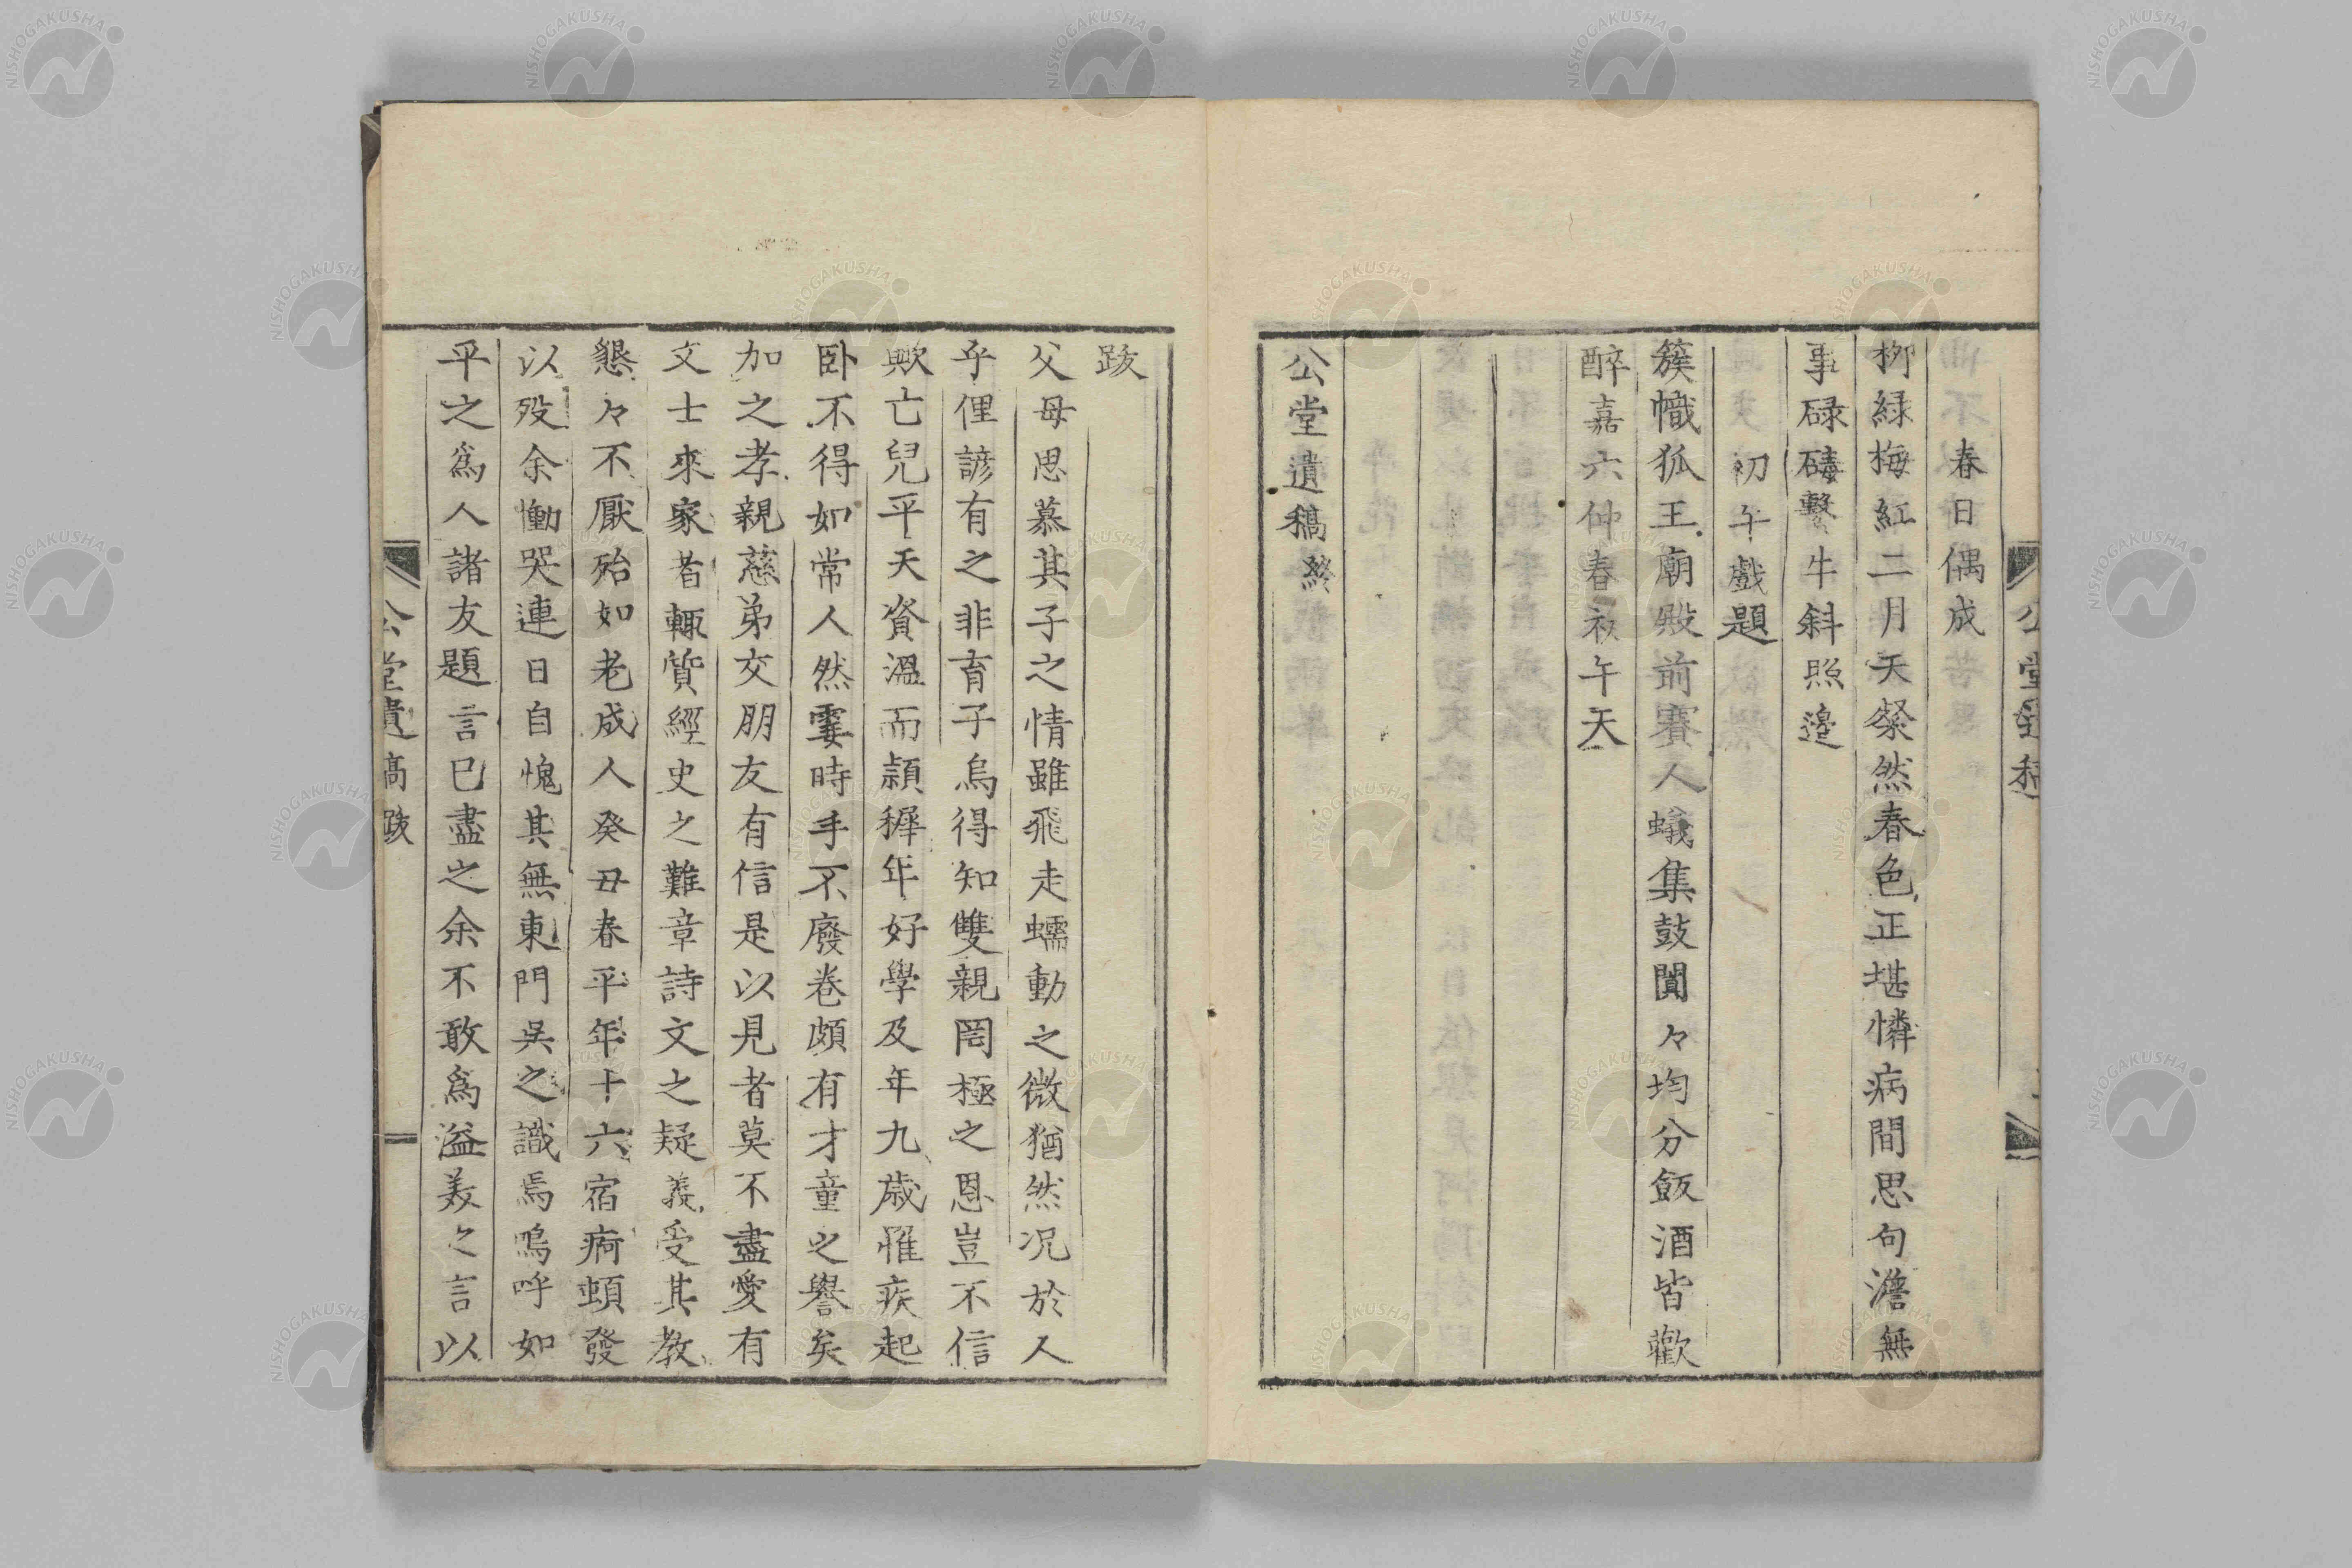 春日偶成
栁緑梅紅二月天粲然春色正堪憐病間思句澹無
事碌磚繫牛斜照邉
初午戲題
簇幟狐王廟殿前賽人蟻集鼓闐々均分飯酒皆歡
醉嘉六仲春初午天
公堂遺稿終
公堂遺稿
跋
父母思慕其子之情雖飛走蠕動之微猶然况於人
乎俚諺有之非育子烏得知雙親罔極之恩豈不信
歟亡兒平天資溫而頴穉年好學及年九歳罹疾起
卧不得如常人然霎時手不廢卷頗有才童之譽矣
加之孝親慈弟交朋友有信是以見者莫不盡愛有
文士來家者輙質經史之難章詩文之疑義受其教
懇々不厭殆如老成人癸丑春平年十六宿痾頓發
以歿余慟哭連日自愧其無東門吳之識焉嗚呼如
平之爲人諸友題言已盡之余不敢爲溢美之言以
公堂遺稿跋
NISHOGAKUSHA